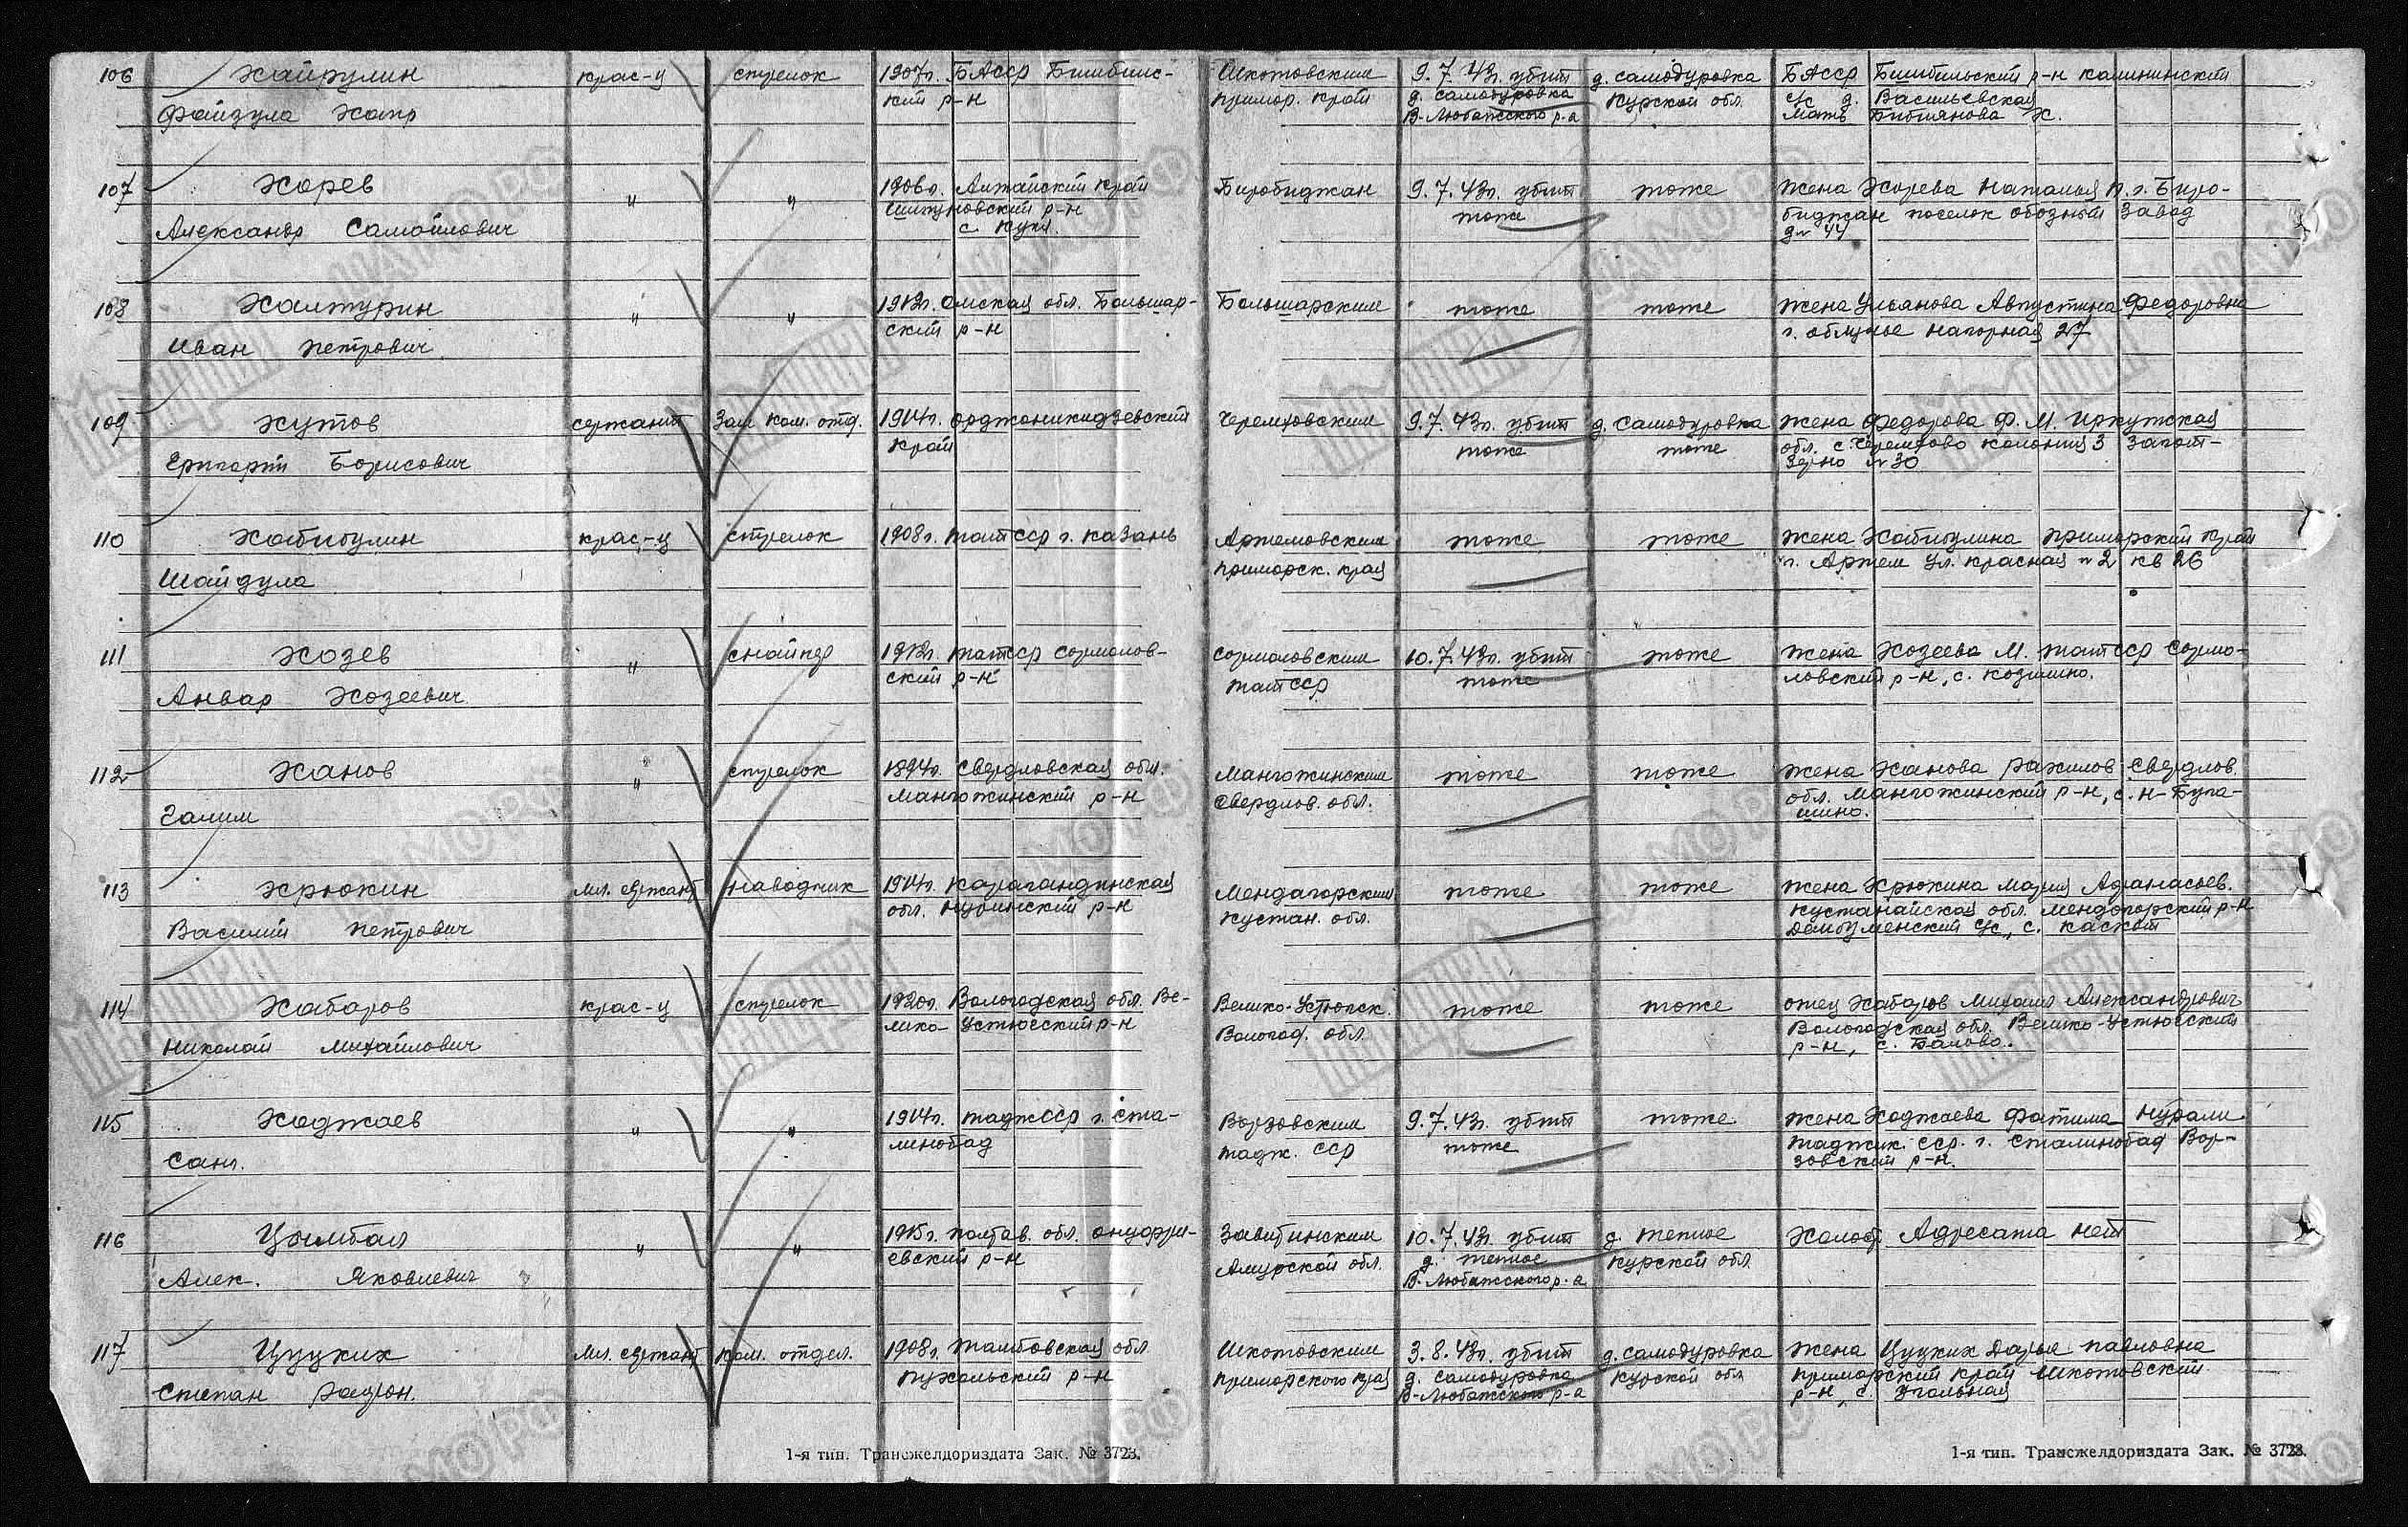 106 Хайрулин крас-ц стрелок 1907г. БАССР Бишбилс- Шкотовским 9.7.43г. убит д. Самодуровка БАССР Бишбильский р-н Калининский
Файзула Хаир кий р-н Примор. край д. Самодуровка Курской обл. с/с д. Васильевская
В-Любажского р-а Мать Бибиянова Х.
107 Хорев " " 1906г. Алтайский край Биробиджан 9.7.43г. убит тоже Жена Хорева Наталья П. г. Биро-
Александр Самойлович Шипуновский р-н тоже биджан поселок обозный завод
с. д№ 44
108 Халтурин " " 1913г. Омская обл. Большар- Большарским тоже тоже Жена Ульянова Августина Федоровна
Иван Петрович ский р-н г. Облучье Нагорная 27
109 Хутов сержант Зам ком. отд. 1914г. Орджоникидзевский Черемховским 9.7.43г. убит д. Самодуровка Жена Федорова Ф. М. Иркутская
Борисович край тоже тоже обл. с. Черемхово колония 3 Загот-
зерно №30
110 Хабибулин крас-ц стрелок 1908г. ТатССР г. Казань Артемовским тоже тоже Жена Хабибулина Приморский край
Шайдула Приморск. края г. Артем ул. Красная №2 кв 26
111 Хозев " снайпер 1913г. ТатССР Сормолов- Сормоловским 10.7.43г. убит тоже Жена Хозеева М. ТатССР Сормо-
Анвар Хозеевич ский р-н ТатССР тоже ловский р-н, с. Козшино.
112 Ханов " стрелок 1894г. Свердловская обл. Мангожинским тоже тоже Жена Ханова Рахилов Свердлов.
Галим Мангожинский р-н Свердлов. обл. обл. Мангожинский р-н, с. Н-Буга-
шино.
113 Хрюкин мл. сержант наводчик 1914г. Карагандинская Мендагорским тоже тоже Жена Хрюкина Мария Афанасьев.
Василий Петрович обл. р-н Кустан. обл. Кустанайская обл. Мендогорский р-н
с/с, с. Каскат
114 Хабаров крас-ц стрелок 1920г. Вологодская обл. Ве- Велико-Устюгск. тоже тоже отец Хабаров Михаил Александрович
Николай Михайлович лико-Устюгский р-н Вологод. обл. Вологодская обл. Велико-Устюгский
р-н, с. Балово.
115 Ходжаев " " 1914г. ТаджССР г. Ста- Ворзовским 9.7.43г. убит тоже. Жена Ходжаева Фатима Нурали
Саиг. линобад Тадж. ССР тоже Таджик. ССР. г. Сталинобад Вор-
зовский р-н.
116 Цымбал " " 1915г. Полтав. обл. Онуфри- Завитинским 10.7.43г. убит д. Теплое Холост Адресата нет
Алек. Яковлевич евский р-н Амурской обл. д. Теплое Курской обл.
В-Любажского р-а
117 Цуцких Мл. сержант ком. отдел. 1908г. Тамбовская обл Шкотовским 3.8.43г. убит д. Самодуровка Жена Цуцких Дарья Павловна
Степан р-н Приморского края д. Самодуровка Курской обл Приморский край Шкотовский
В-Любажского р-а р-н, с. Угольная
1-я тип. Трансжелдориздата Зак. № 3723. 1-я тип. Трансжелдориздата Зак. № 3723.